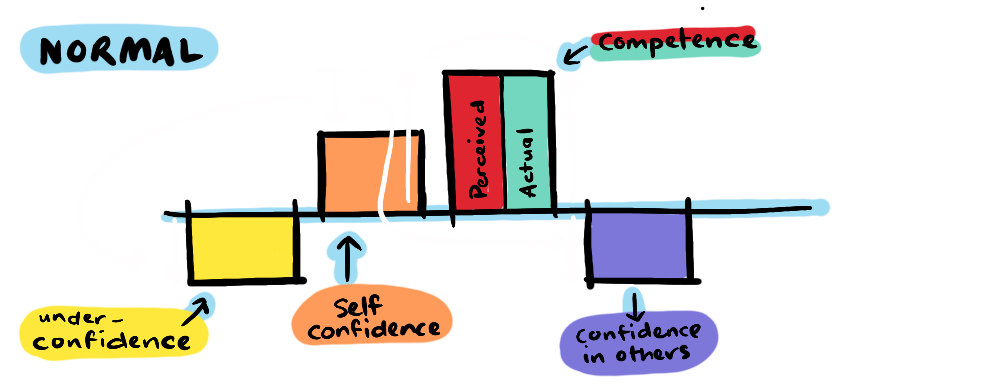 NORMAL
Competence
Perceived
Actual
under-
confidence
Self
confidence
Confidence
in others